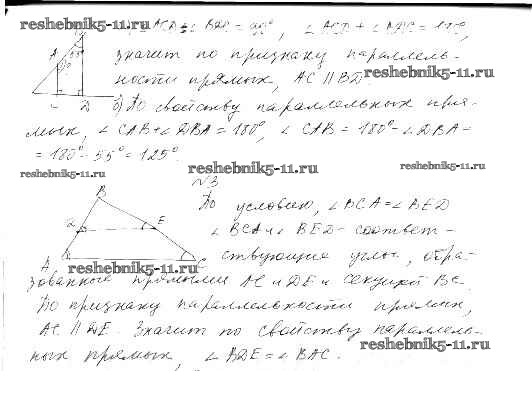 reshebnik5-11.ru
∠ACD = ∠BDC = 90°, ∠ACD + ∠BDC = 180°,
значит по признаку параллель-
ности прямых, AC || BD
reshebnik5-11.ru
б) По свойству параллельных пря-
мых, ∠CAB + ∠DBA = 180°, ∠CAB = 180° - ∠DBA =
= 180° - 55° = 125°.
reshebnik5-11.ru
reshebnik5-11.ru
reshebnik5-11.ru
N3
По условию, ∠BCA = ∠BED
∠BCA и ∠BED - соответ-
ствующие углы, обра-
зованные прямыми AC и DE и секущей BC.
reshebnik5-11.ru
По признаку параллельности прямых,
AC || DE. Значит по свойству параллель-
reshebnik5-11.ru
ных прямых, ∠BDE = ∠BAC.